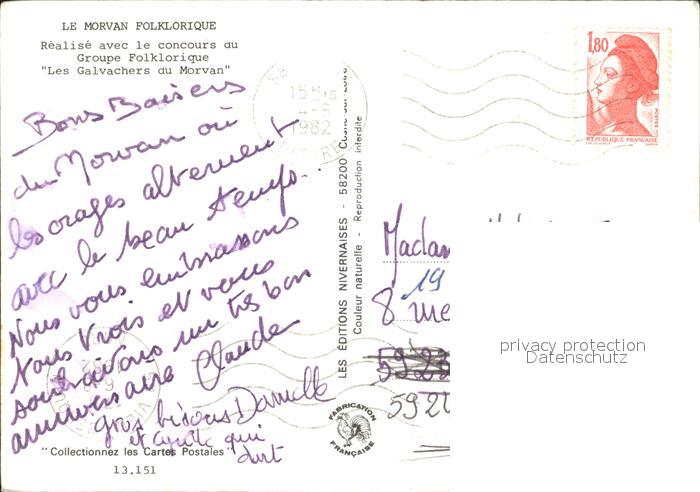 LE MORVAN FOLKLORIQUE
Réalisé avec le concours du
Groupe Folklorique
"Les Galvachers du Morvan"
Bons Baisers
du Morvan où
les orages alternent
avec le beau temps...
Nous vous embrassons
tous trois et vous
souhaitons un très bon
anniversaire Claude
gros bisous Danielle
et qui
dort
"Collectionnez les Cartes Postales"
13.151
LES ÉDITIONS NIVERNAISES - 58200 Cosne-sur-Loire
Couleur naturelle - Reproduction interdite
FABRICATION
FRANÇAISE
1982
1,80
POSTES
RÉPUBLIQUE FRANÇAISE
Madam
19
8
privacy protection
Datenschutz